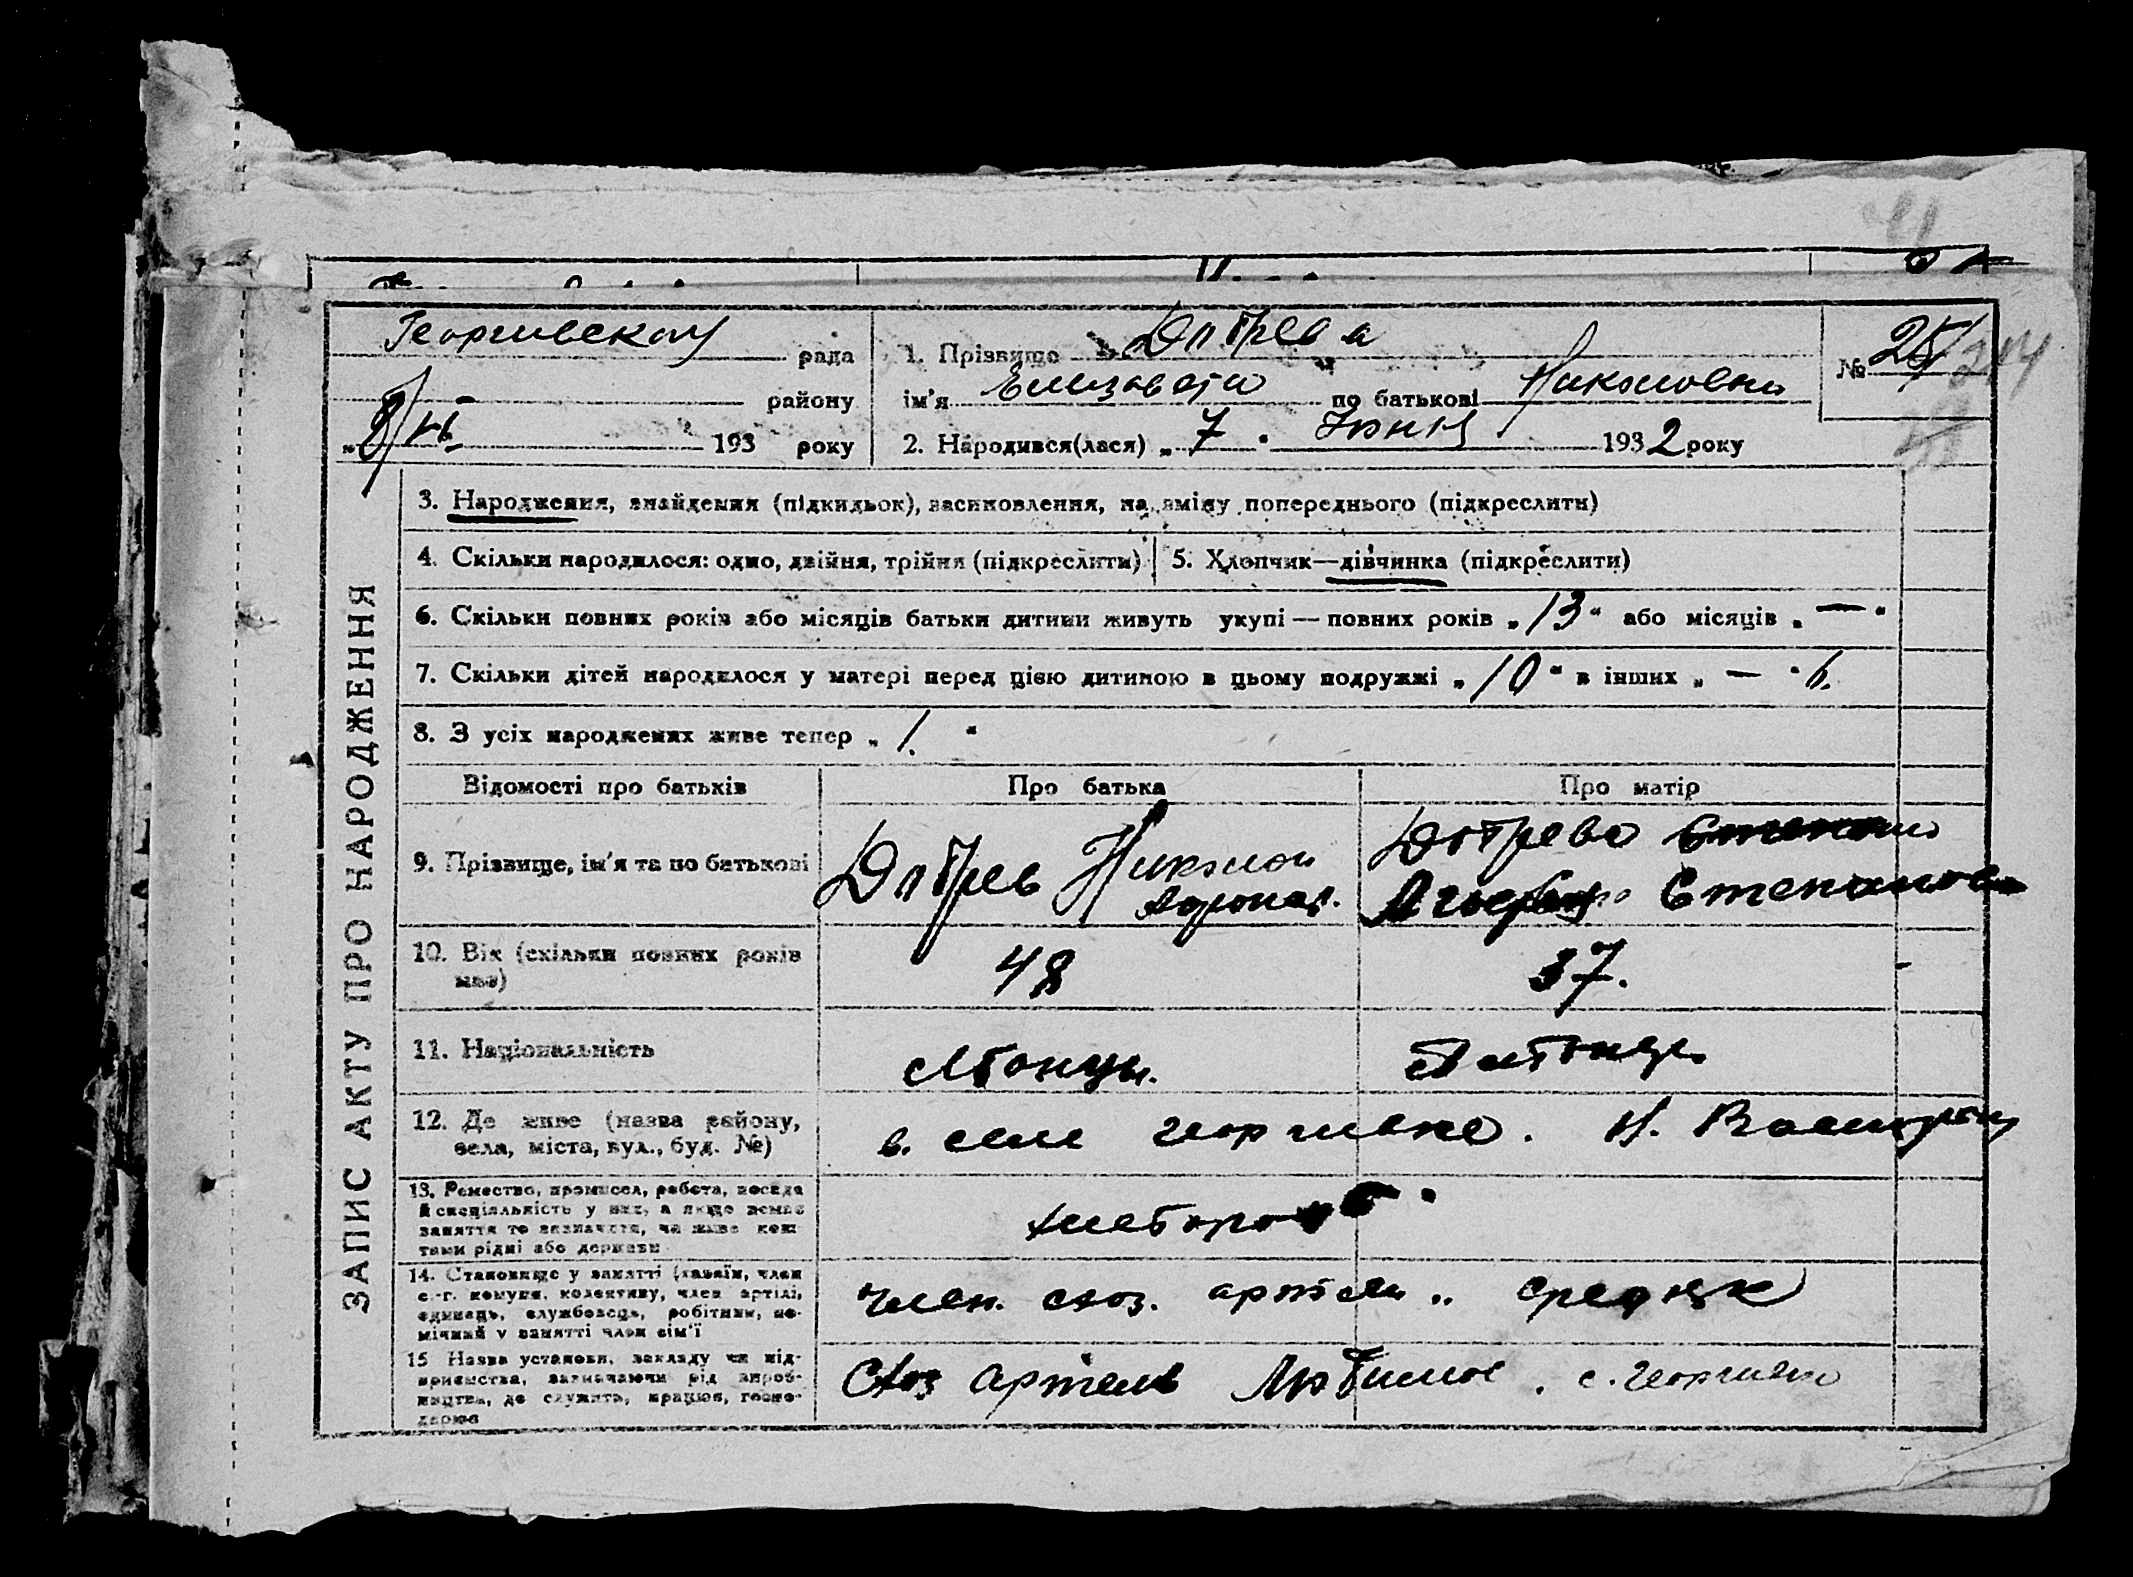 Георгиевской рада
району
„8/VI 193 року
1. Прізвище Дптрева
ім'я Елизавета по батькові Николовна
2. Народився(лася) „ 7 " Юнн 1932 року
№ 25/ 214
ЗАПИС АКТУ ПРО НАРОДЖЕННЯ
3. Народження, знайдення (підкидьок), засиновлення, на зміну попереднього (підкреслити)
4. Скільки народилося: одно, двійня, трійня (підкреслити) 5. Хлопчик—дівчинка (підкреслити)
6. Скільки повних років або місяців батьки дитини живуть укупі — повних років „ 13 “ або місяців „ — “
7. Скільки дітей народилося у матері перед цією дитиною в цьому подружжі „ 10 “ в інших „ — “
8. З усіх народжених живе тепер „ 1. “
Відомості про батьків Про батька Про матір
9. Прізвище, ім'я та по батькові
10. Вік (скільки повних років має) 48 37.
11. Національність
12. Де живе (назва району, села, міста, вул., буд. №) в. селе георгиевке. Н.
13. Ремество, промисел, работа, посада
й спеціяльність у них, а якщо немає
заняття то зазначити, чи живе кош-
тами рідні або держави
хлебороб
14. Становище у занятті (хазяїн, член
с.-г. комуни, колективу, член артілі,
одинець, службовець, робітник, по-
мічний у занятті член сім'ї
член. схоз. артели „ средняк
15 Назва установи, закладу чи під-
приємства, зазначаючи рід вироб-
ництва, де служить, працює, госпо-
дарює
Схоз артель с. георгиевки